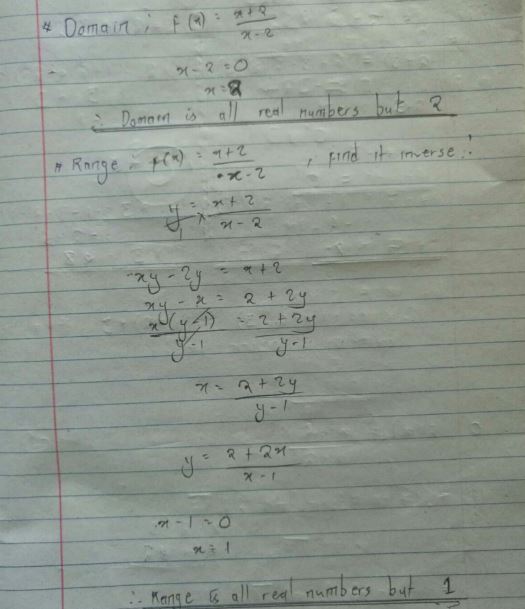 * Domain ; f(x) = x+2 / x-2
x - 2 = 0
x = 2
∴ Domain is all real numbers but 2
* Range :- f(x) = x+2 / x-2 , find it inverse :
y/1 × = x+2 / x-2
xy - 2y = x+2
xy - x = 2 + 2y
x(y-1) / y-1 = 2+2y / y-1
x = 2+2y / y-1
y = 2+2x / x-1
x - 1 = 0
x = 1
∴ Range is all real numbers but 1